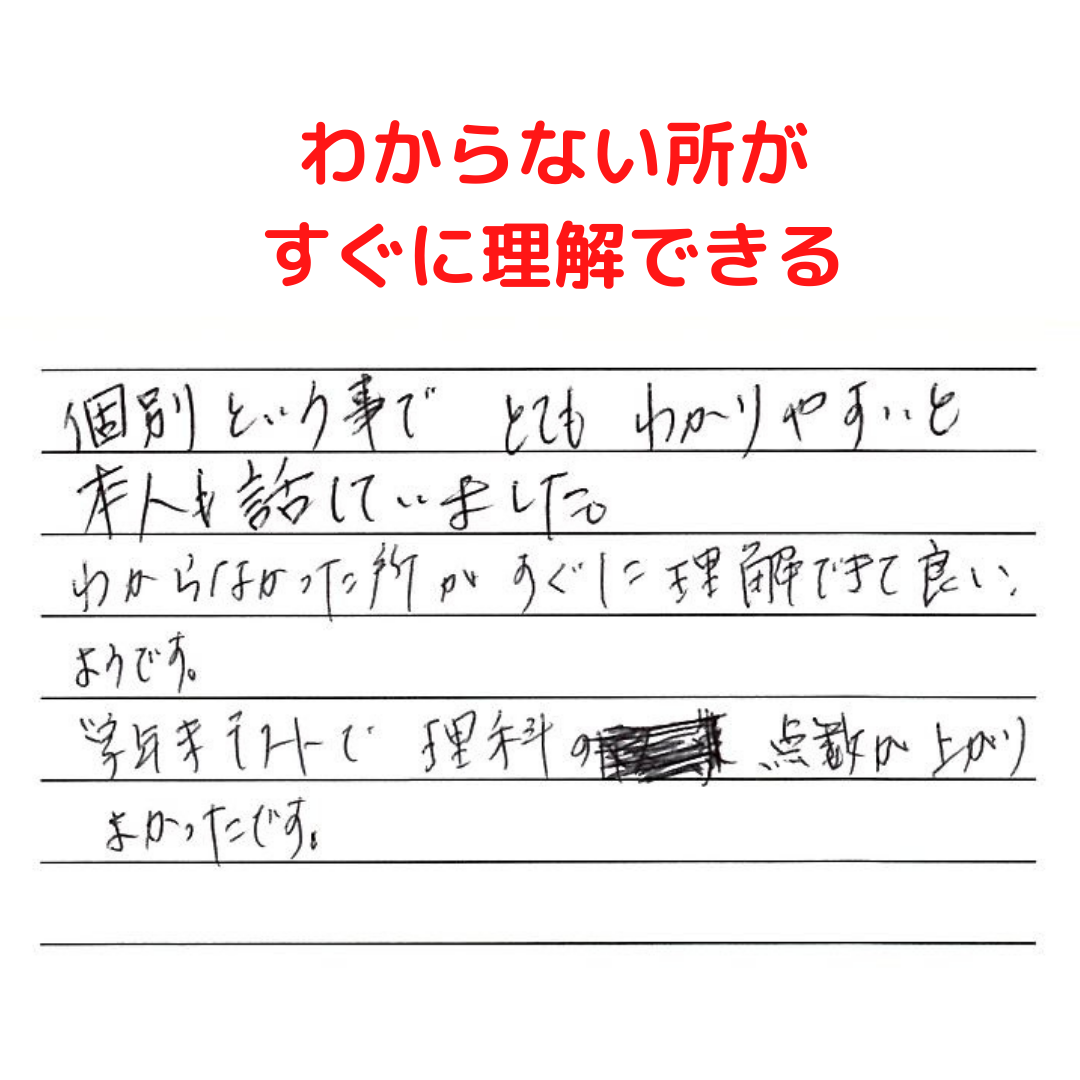 わからない所が
すぐに理解できる
個別という事で とても わかりやすいと
本人も話していました。
わからなかった所が すぐに理解できて良い
ようです。
学年末テストで 理科の 点数が上がり
よかったです。